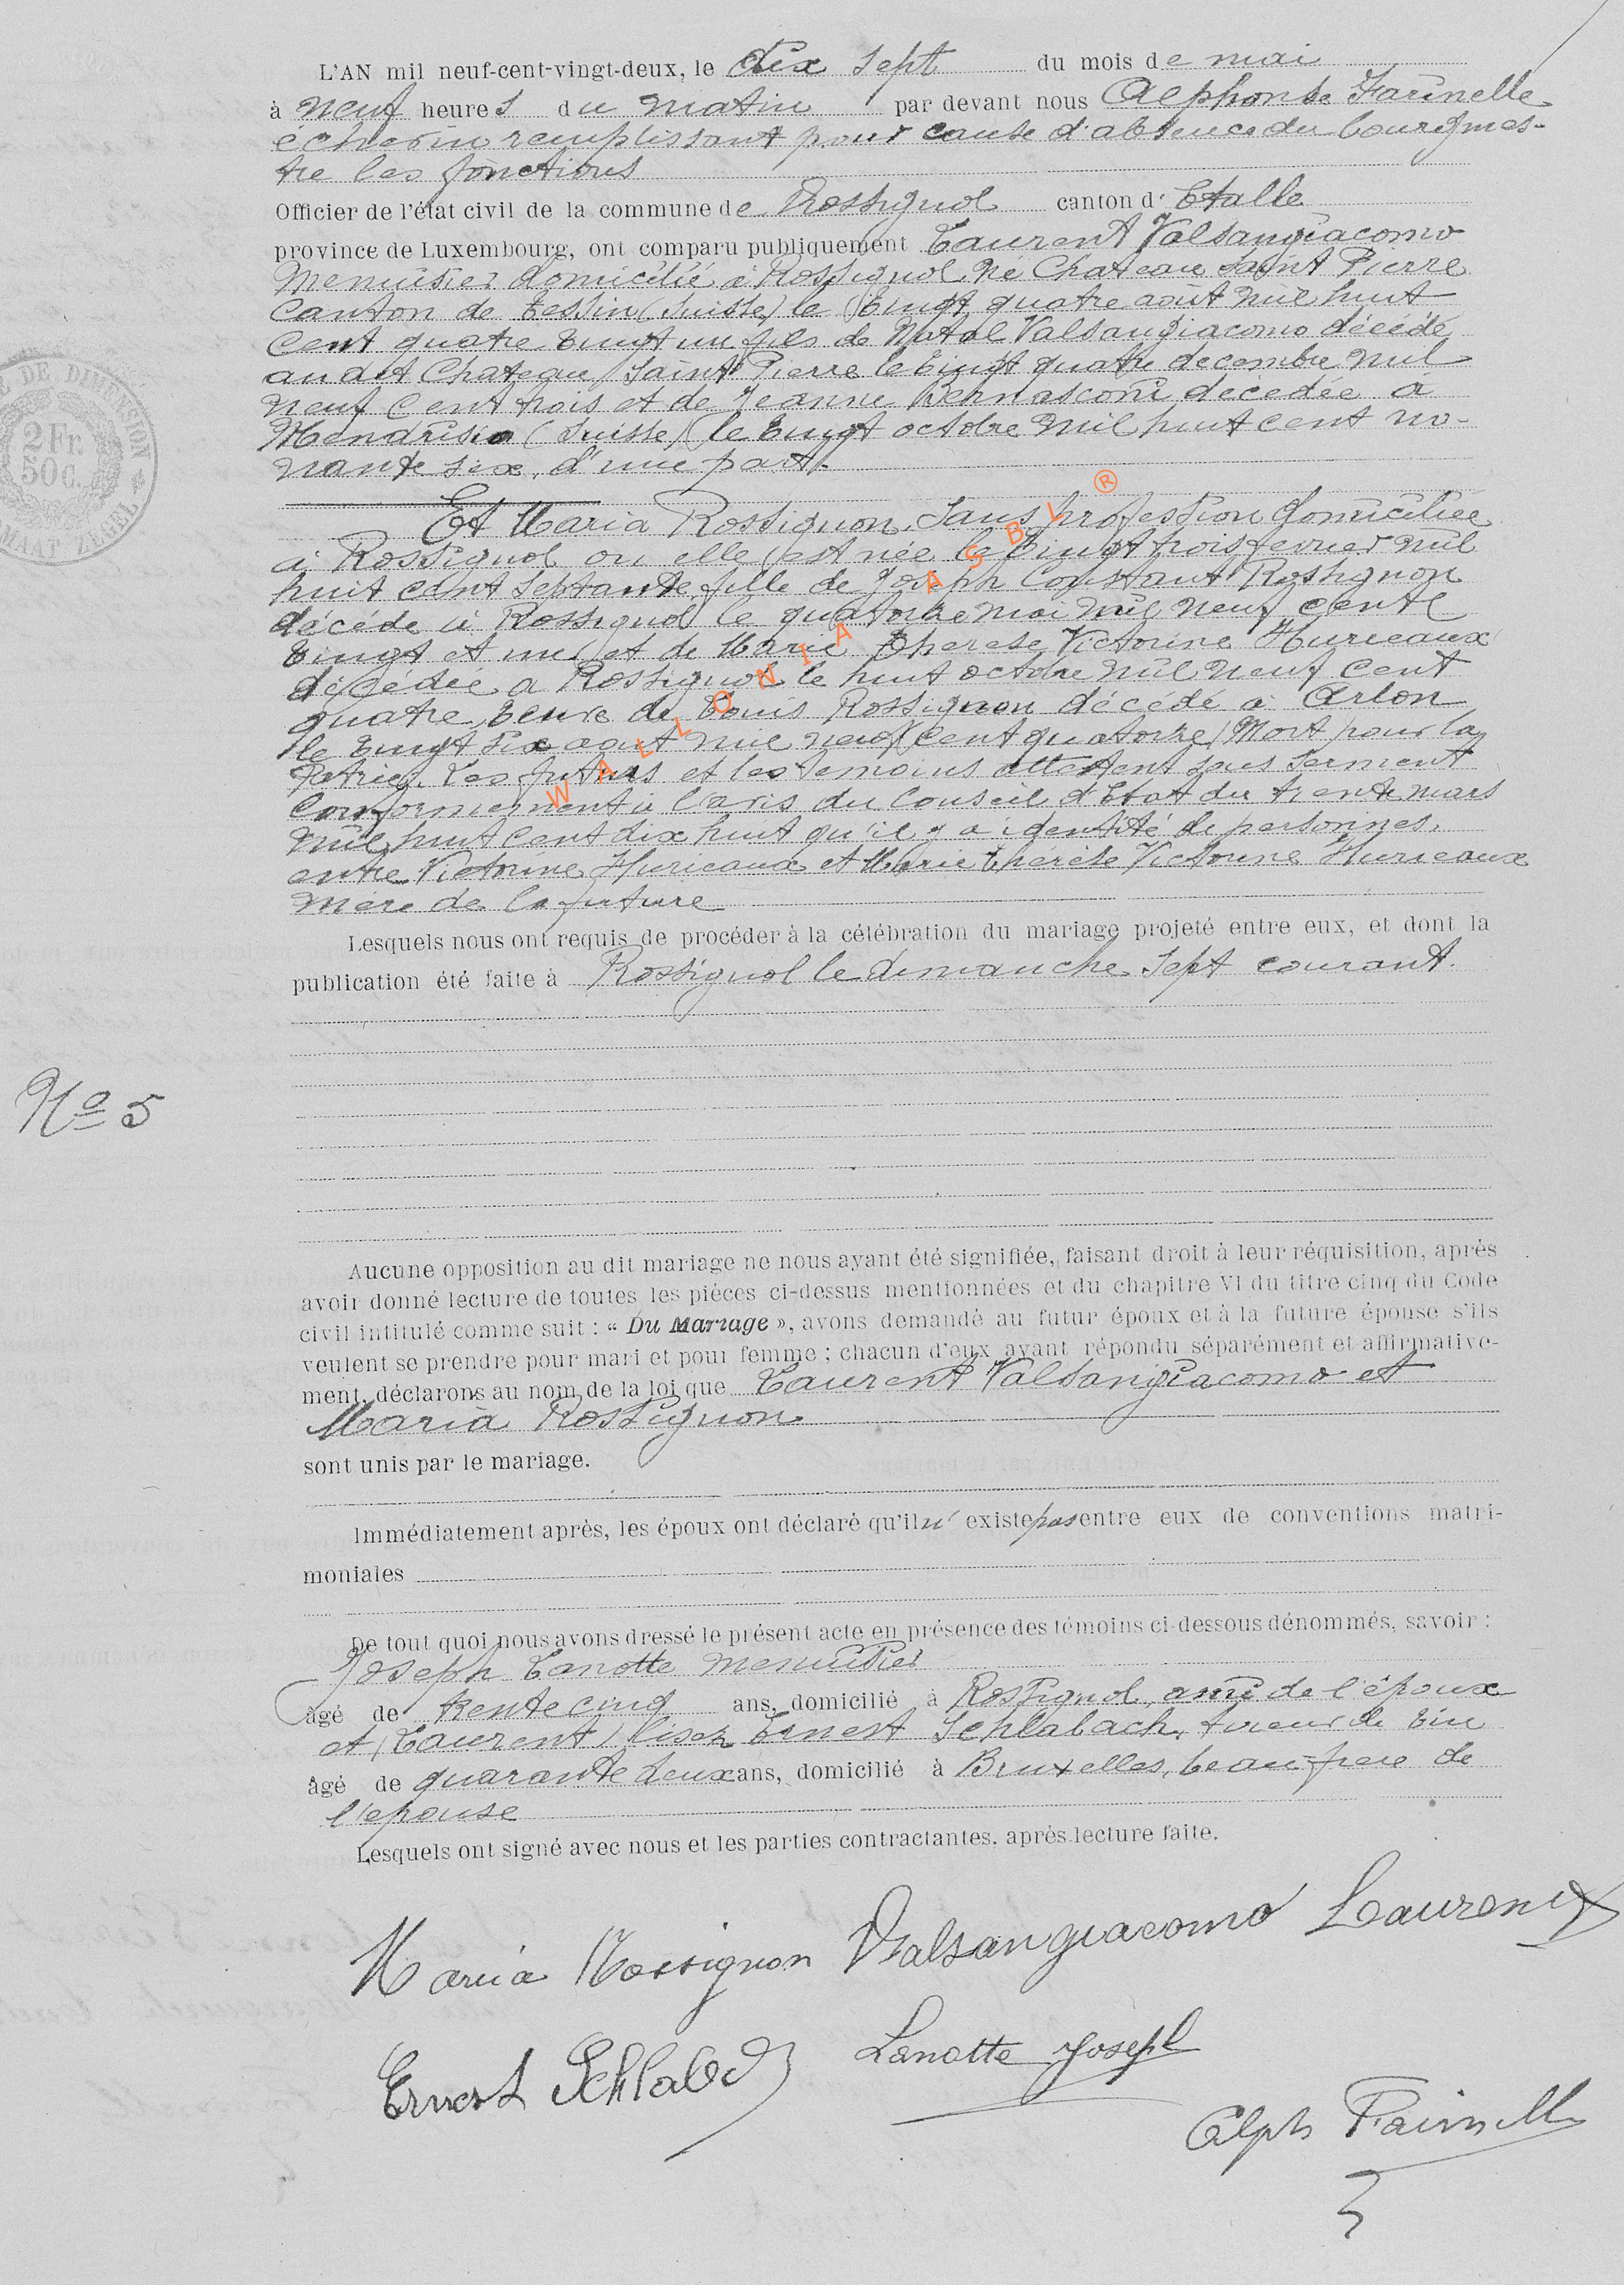 L'AN mil neuf-cent-vingt-deux, le dix sept du mois de mai
à neuf heures du matin par devant nous Alphonse Farinelle
échevin remplissant pour cause d'absence du bourgmes-
tre les fonctions
Officier de l'état civil de la commune de Rossignol canton d'Etalle
province de Luxembourg, ont comparu publiquement Laurent Valsangiacomo
menuisier domicilié à Rossignol né Chateau Saint Pierre
Canton de Tessin (Suisse) le vingt quatre août mil huit
cent quatre vingt un fils de Natal Valsangiacomo décédé
au dit Chateau Saint Pierre le vingt quatre decembre mil
neuf cent trois et de Jeanne Bernasconi decedée à
Mendrisio (Suisse) le vingt octobre mil huit cent no-
nante six, d'une part.
Et Maria Rossignon, sans profession domiciliée
à Rossignol ou elle est née le vingt trois fevrier mil
huit cent septante, fille de Joseph Constant Rossignon
décédé à Rossignol le quatorze mai mil neuf cent
vingt et un et de Marie Therese Victorine Hurieaux
décédée a Rossignol le huit octobre mil neuf cent
quatre, veuve de Louis Rossignon décédé à Arlon
le vingt six aout mil neuf cent quatorze (Mort pour la
Patrie). Les futurs et les temoins attestent sous serment
conformement à l'avis du Conseil d'Etat du trente mars
mil huit cent dix huit qu'il y a identité de personnes,
entre Victorine Hurieaux et Marie Thérèse Victorine Hurieaux
mère de la future
Lesquels nous ont requis de procéder à la célébration du mariage projeté entre eux, et dont la
publication été faite à Rossignol le dimanche sept courant.
Aucune opposition au dit mariage ne nous ayant été signifiée, faisant droit à leur réquisition, après
avoir donné lecture de toutes les pièces ci-dessus mentionnées et du chapitre VI du titre cinq du Code
civil intitulé comme suit : « Du Mariage », avons demandé au futur époux et à la future épouse s'ils
veulent se prendre pour mari et pour femme ; chacun d'eux ayant répondu séparément et affirmative-
ment, déclarons au nom de la loi que Laurent Valsangiacomo et
Maria Rossignon
sont unis par le mariage.
Immédiatement après, les époux ont déclaré qu'il n'existe pas entre eux de conventions matri-
moniales
De tout quoi nous avons dressé le présent acte en présence des témoins ci-dessous dénommés, savoir :
Joseph Lanotte menuisier
âgé de trente cinq ans, domicilié à Rossignol, ami de l'époux
et (Laurent) lisez Ernest Schlabach,
âgé de quarante deux ans, domicilié à Bruxelles, beau-frere de
l'epouse
Lesquels ont signé avec nous et les parties contractantes, après lecture faite.
Maria Rossignon Valsangiacomo Laurent
Ernest Schlabach Lanotte Joseph
Alph Farinelle
N° 5
2 Fr.
50 C.
DE DIMENSION
MAAT ZEGEL
WALLONIA ASBL ®